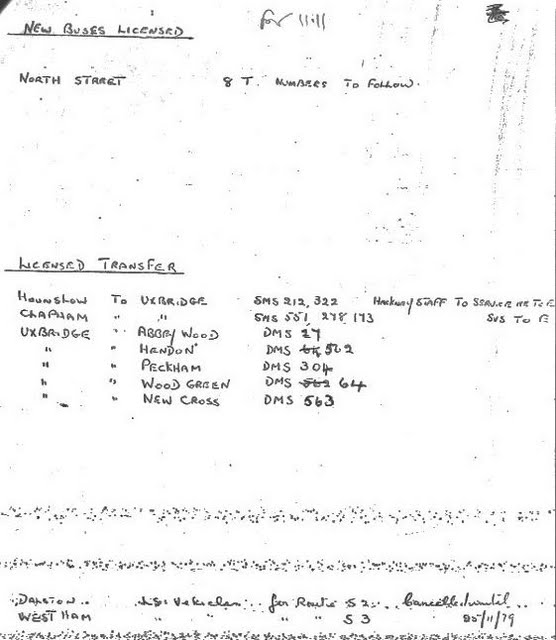 NEW BUSES LICENSED
for 11/11
NORTH STREET 8 T. NUMBERS TO FOLLOW.
LICENSED TRANSFER
HOUNSLOW TO UXBRIDGE SMS 212, 322 HACKNEY STAFF TO SERVICE
CLAPHAM " " SMS 551, 278, 173 SVS TO E
UXBRIDGE " ABBEY WOOD DMS 27
" " HENDON DMS 562
" " PECKHAM DMS 304
" " WOOD GREEN DMS 562 64
" " NEW CROSS DMS 563
DALSTON Vehicles for Route S2 Cancelled until
WEST HAM " " " S3 25/11/79